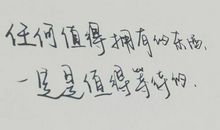 任何值得拥有的东西、
一定是值得等待的.